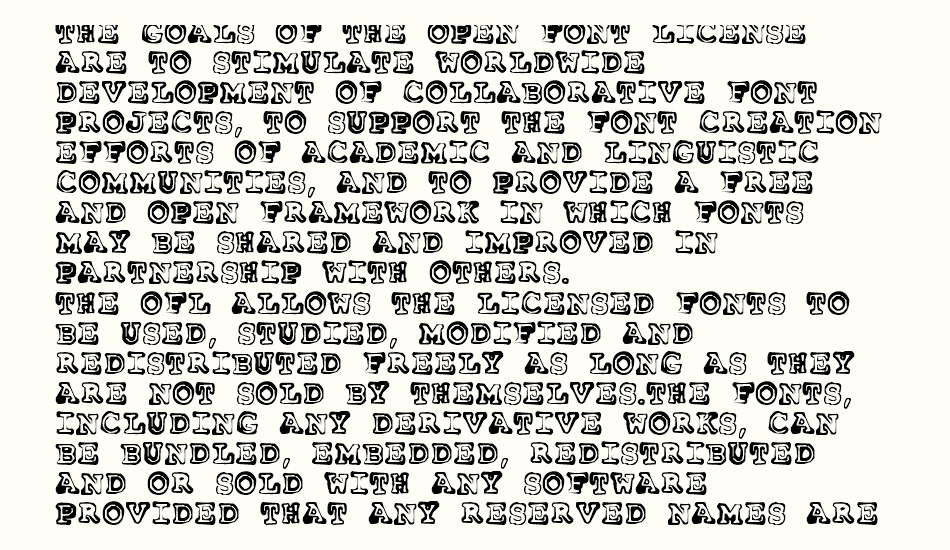 THE GOALS OF THE OPEN FONT LICENSE
ARE TO STIMULATE WORLDWIDE
DEVELOPMENT OF COLLABORATIVE FONT
PROJECTS, TO SUPPORT THE FONT CREATION
EFFORTS OF ACADEMIC AND LINGUISTIC
COMMUNITIES, AND TO PROVIDE A FREE
AND OPEN FRAMEWORK IN WHICH FONTS
MAY BE SHARED AND IMPROVED IN
PARTNERSHIP WITH OTHERS.
THE OFL ALLOWS THE LICENSED FONTS TO
BE USED, STUDIED, MODIFIED AND
REDISTRIBUTED FREELY AS LONG AS THEY
ARE NOT SOLD BY THEMSELVES.THE FONTS,
INCLUDING ANY DERIVATIVE WORKS, CAN
BE BUNDLED, EMBEDDED, REDISTRIBUTED
AND OR SOLD WITH ANY SOFTWARE
PROVIDED THAT ANY RESERVED NAMES ARE